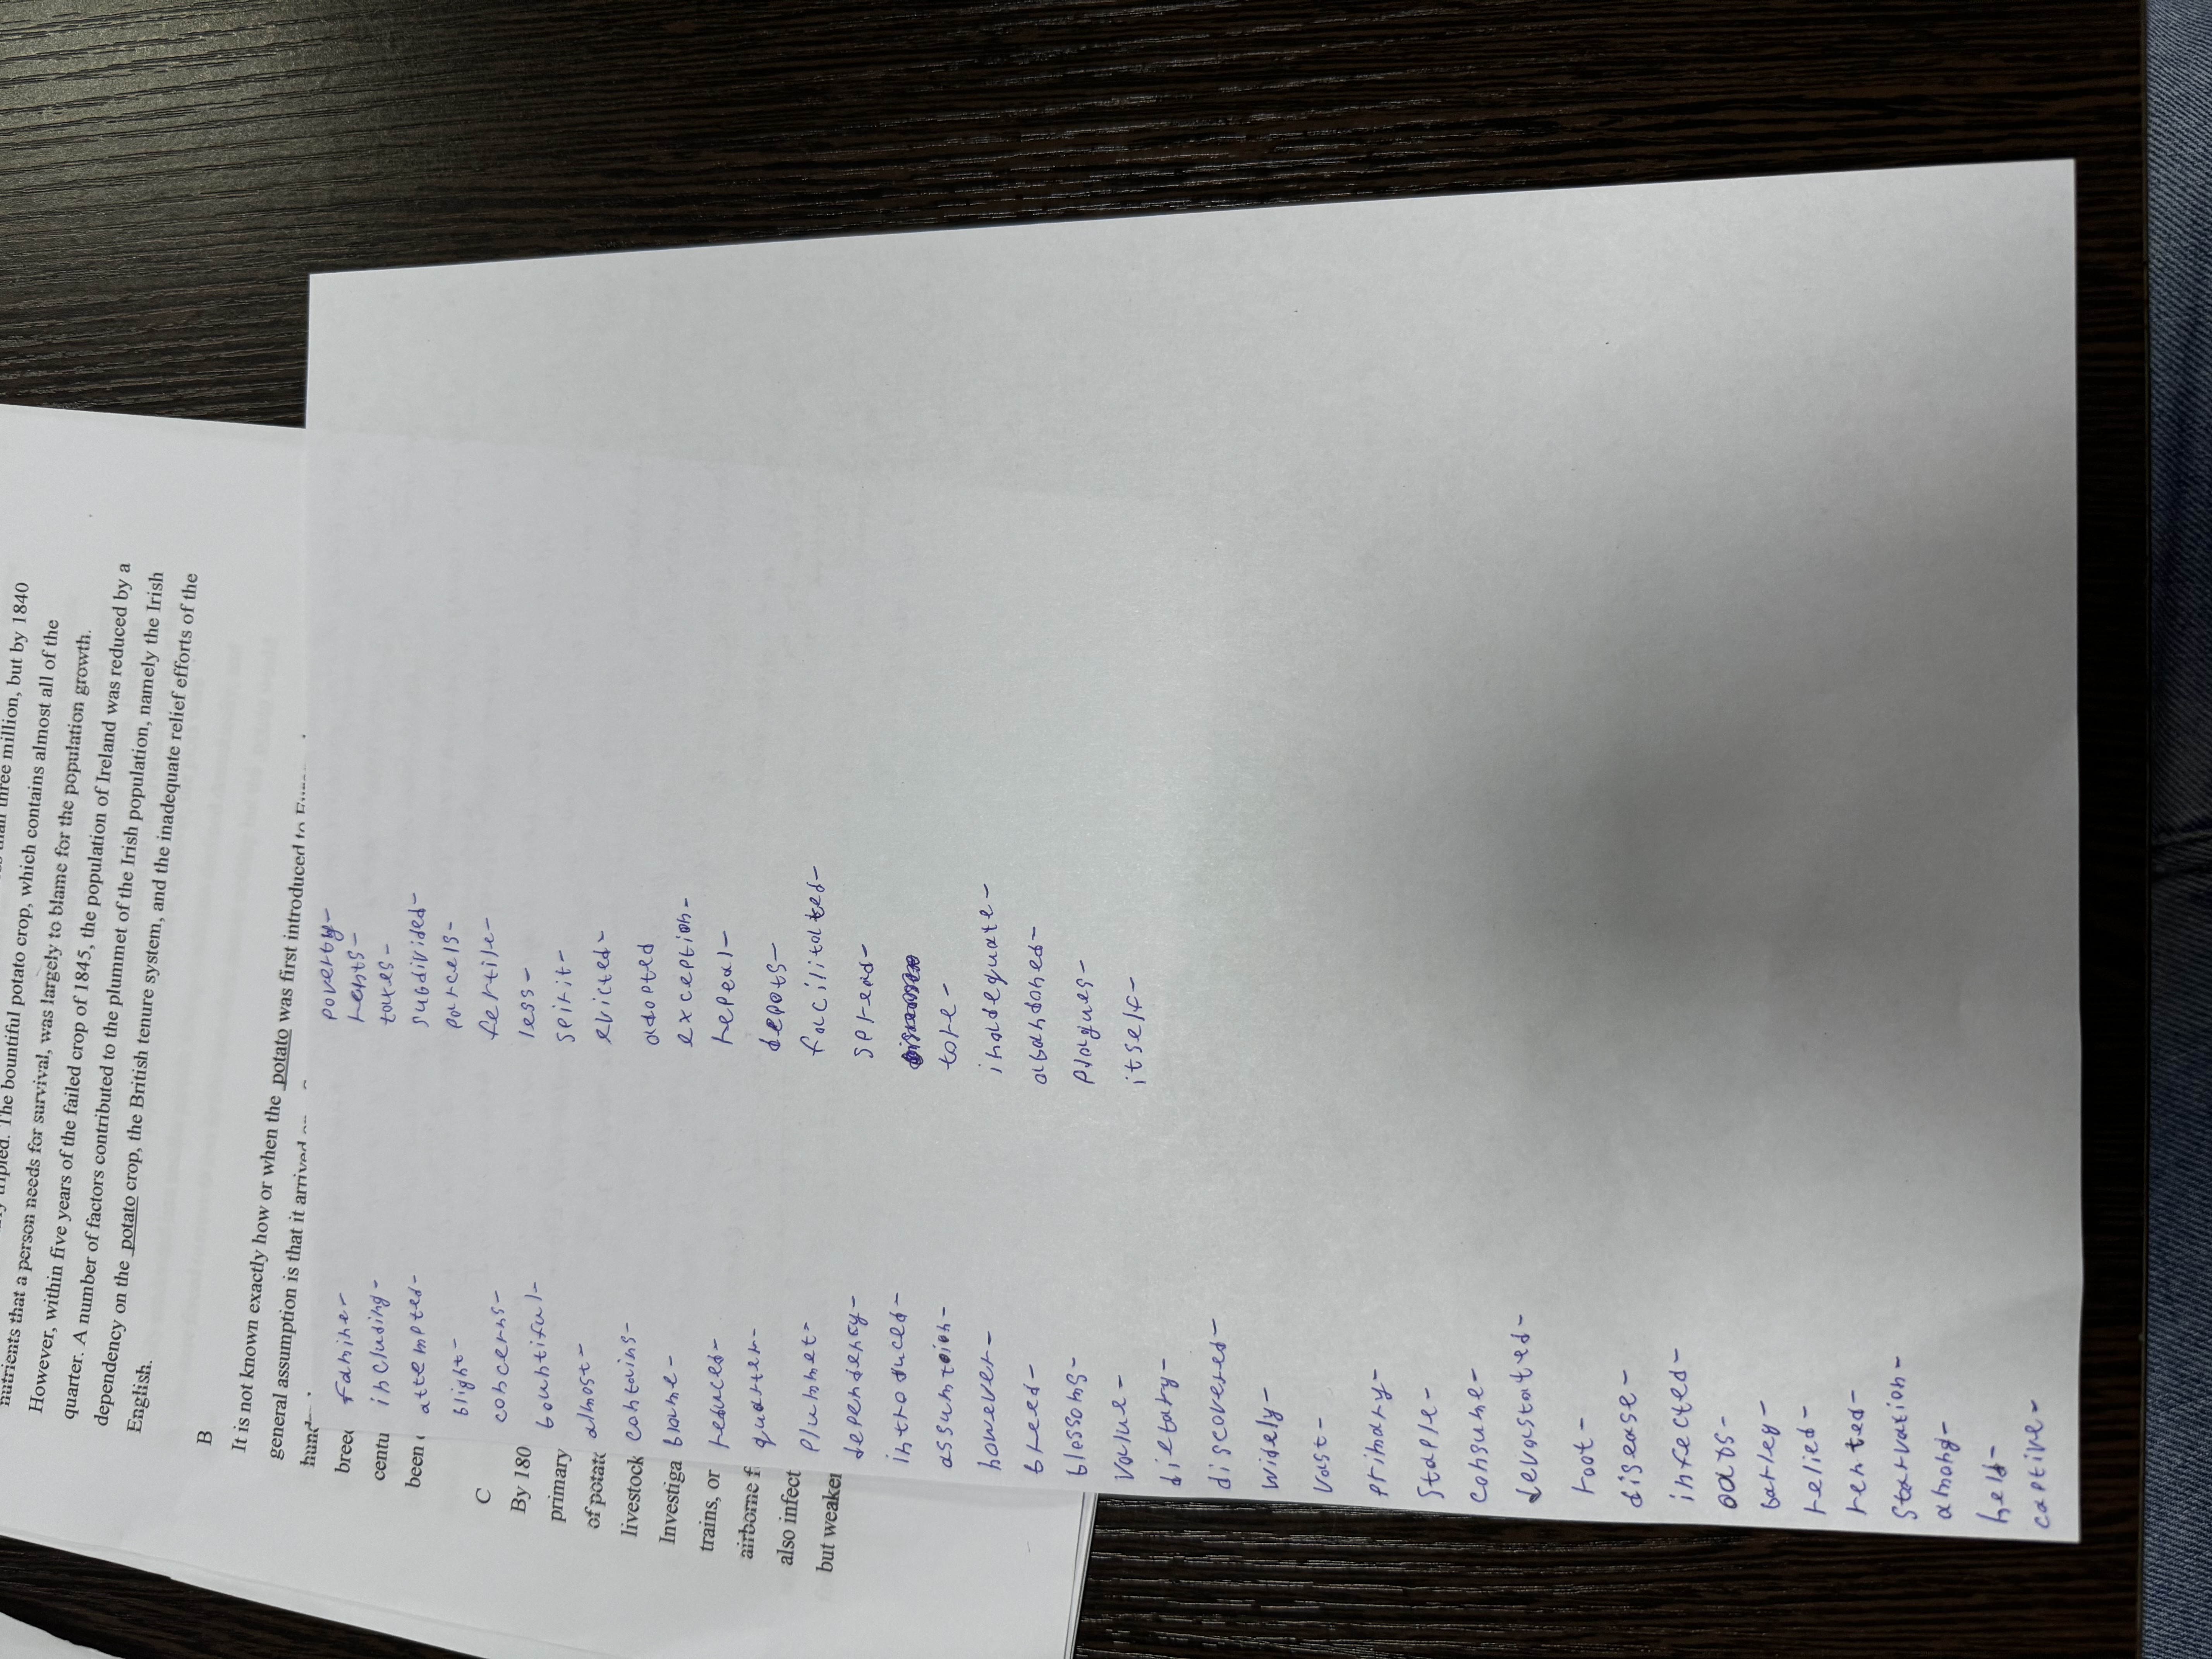 tripled. The bountiful potato crop, which contains almost all of the three million, but by 1840
nutrients that a person needs for survival, was largely to blame for the population growth.
However, within five years of the failed crop of 1845, the population of Ireland was reduced by a
quarter. A number of factors contributed to the plummet of the Irish population, namely the Irish
dependency on the potato crop, the British tenure system, and the inadequate relief efforts of the
English.
B
It is not known exactly how or when the potato was first introduced to
general assumption is that it arrived
C
By 180
primary
of
livestock
trains, or
airborne f
also infect
but
famine-
including-
attempted-
blight-
concerns-
bountiful-
almost-
contains-
blame-
reduced-
quarter-
plummet-
dependency-
introduced-
assumtoion-
however-
breed-
blossoms-
value-
dietary-
discovered-
widely-
vast-
primary-
staple-
consume-
devastated-
root-
disease-
infected-
oats-
barley-
relied-
rented-
starvation-
among-
held-
captive-
poverty-
rents-
taxes-
subdivided-
parcels-
fertile-
less-
spirit-
evicted-
adopted
exception-
repeal-
depots-
facilitated-
spread-
tore-
inadequate-
abandoned-
plagues-
itself-